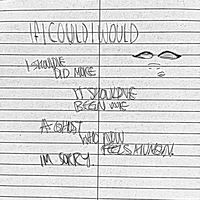 IF I COULD I WOULD
I SHOULDVE
DID MORE
IT SHOULDVE
BEEN ME
A GHOST
WHO NOW
FEELS
IM SORRY.